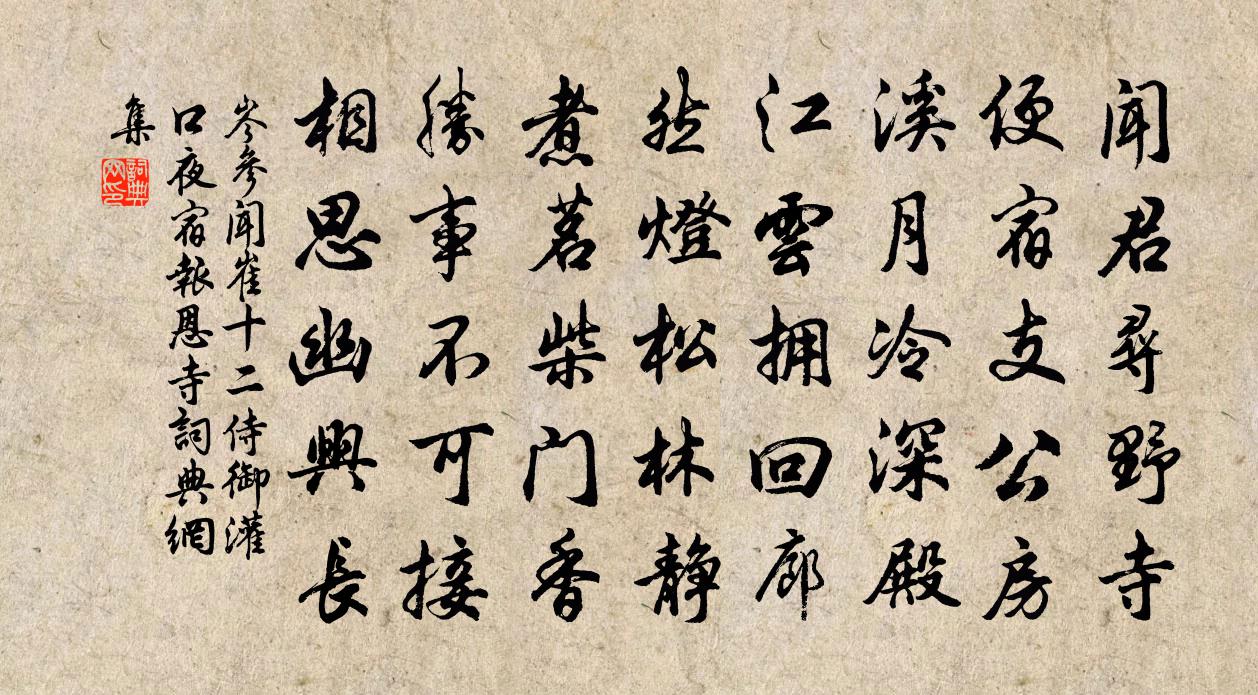 聞君尋野寺
便宿支公房
溪月冷深殿
江雲拥回廊
然燈松林静
煮茗柴门香
勝事不可接
相思幽興長
岑参聞崔十二侍御灌
口夜宿報恩寺詞典網
集
詞典
网印